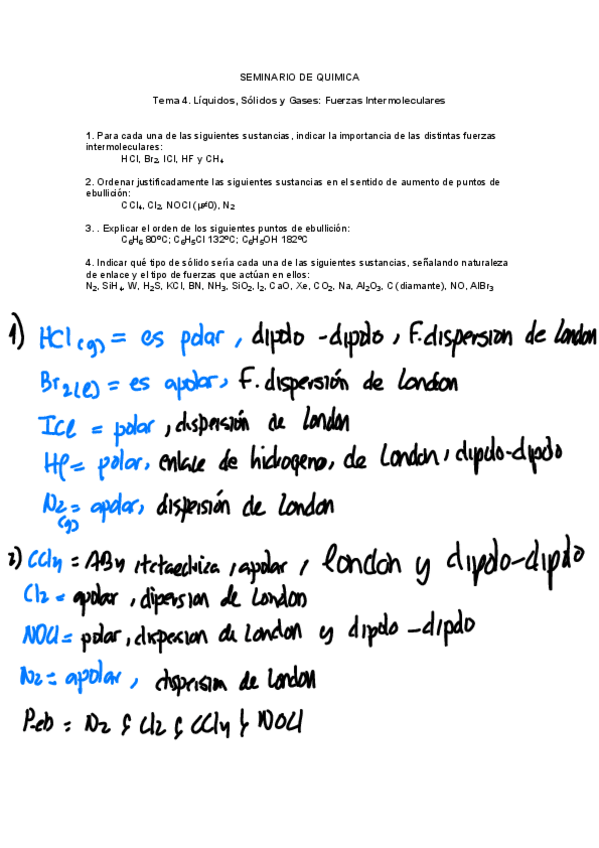 SEMINARIO DE QUIMICA
Tema 4. Líquidos, Sólidos y Gases: Fuerzas Intermoleculares
1. Para cada una de las siguientes sustancias, indicar la importancia de las distintas fuerzas
intermoleculares:
HCl, Br₂, ICl, HF y CH₄
2. Ordenar justificadamente las siguientes sustancias en el sentido de aumento de puntos de
ebullición:
CCl₄, Cl₂, NOCl (μ≠0), N₂
3. . Explicar el orden de los siguientes puntos de ebullición:
C₆H₆ 80ºC; C₆H₅Cl 132ºC; C₆H₅OH 182ºC
4. Indicar qué tipo de sólido sería cada una de las siguientes sustancias, señalando naturaleza
de enlace y el tipo de fuerzas que actúan en ellos:
N₂, SiH₄, W, H₂S, KCl, BN, NH₃, SiO₂, I₂, CaO, Xe, CO₂, Na, Al₂O₃, C (diamante), NO, AlBr₃
1) HCl (g) = es polar, dipolo - dipolo, F. dispersion de london
Br₂(l) = es apolar, F. dispersión de London
ICl = polar, dispersión de london
HF = polar, enlace de hidrogeno, de London, dipolo-dipolo
N₂ (g) = apolar, dispersión de London
2) CCl₄ = AB₄ , apolar, london y dipolo-dipolo
Cl₂ = apolar, dipersion de London
NOCl = polar, dispersion de London y dipolo - dipolo
N₂ = apolar, dispersion de London
P.eb = N₂ Cl₂ CCl₄ NOCl